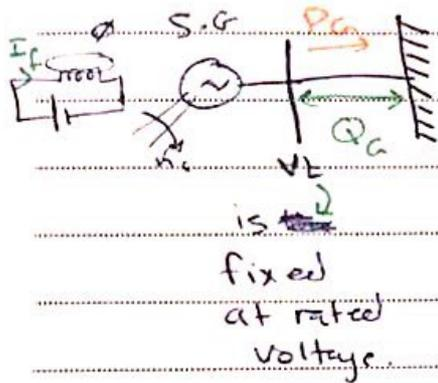 Ø S.G P_G
I_f
~
Q_G
Vt
is
fixed
at rated
voltage.